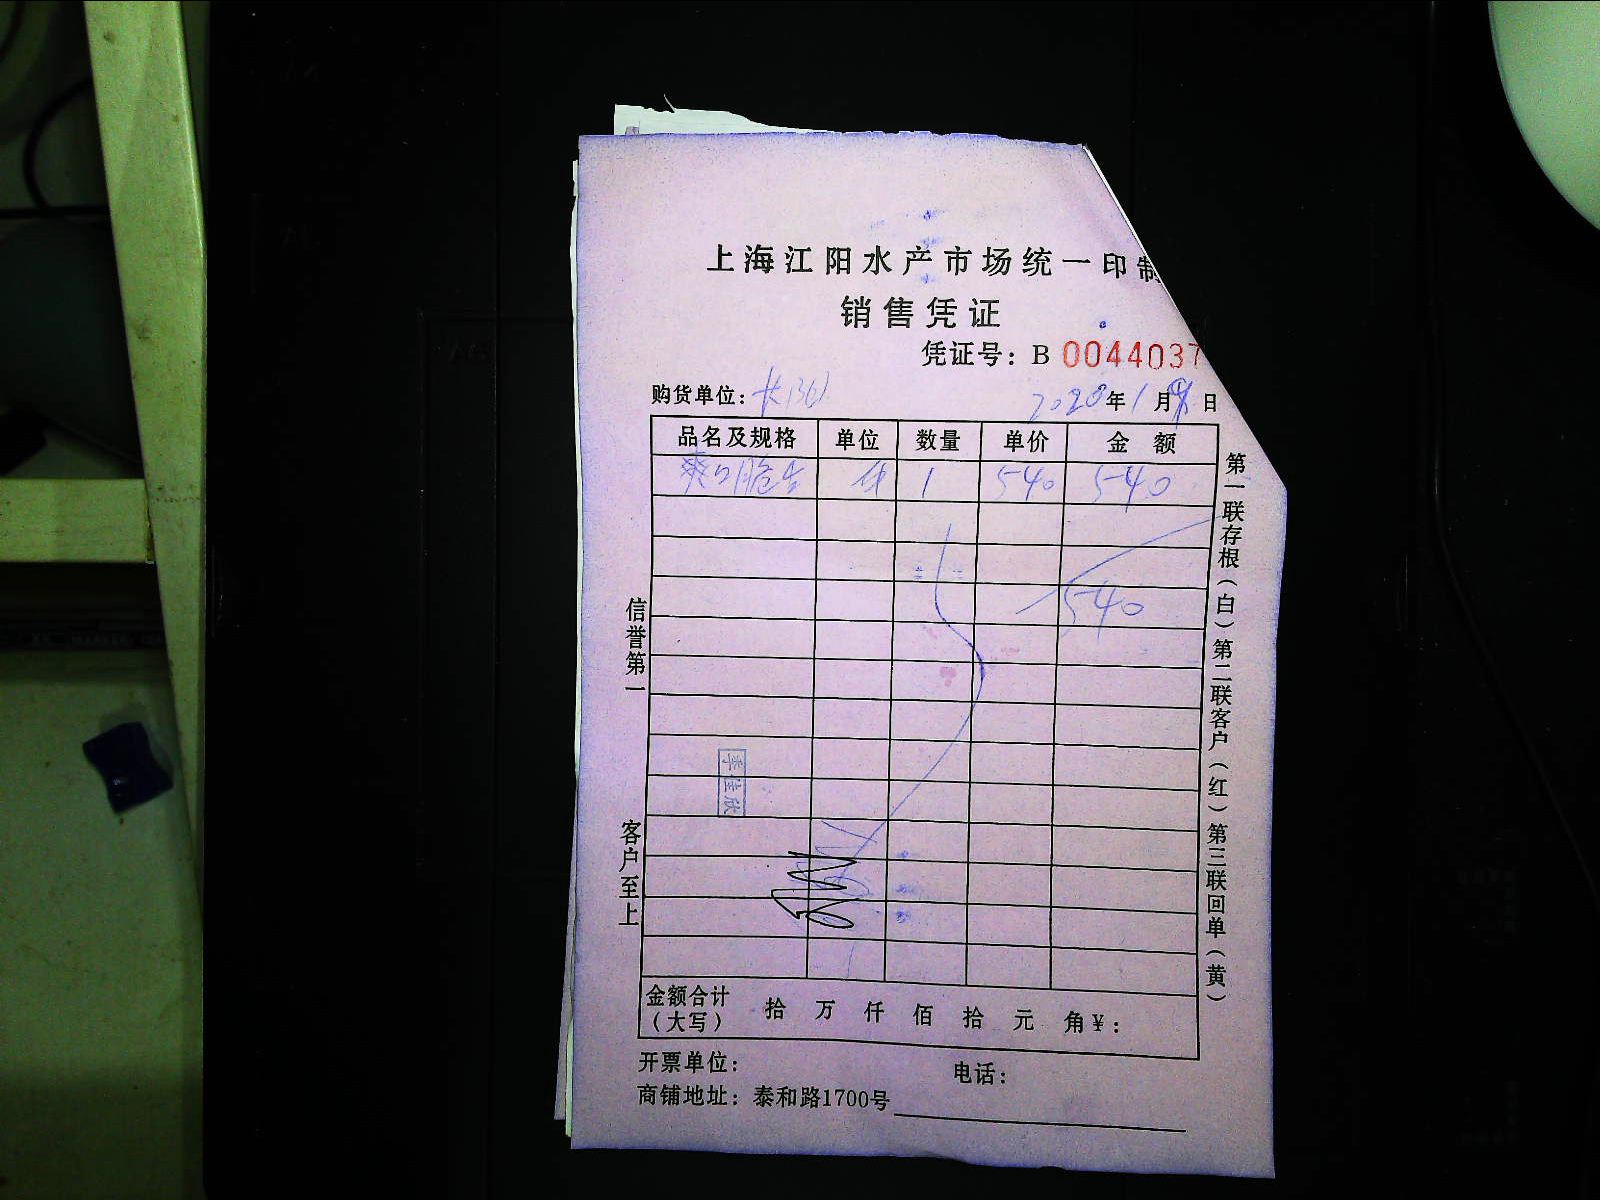 上海江阳水产市场统一印制
销售凭证
凭证号：B 0044037
购货单位：
2020年1月9日
品名及规格 单位 数量 单价 金额
爽口脆 件 1 540 540
540
信誉第一
客户至上
第一联存根（白）第二联客户（红）第三联回单（黄）
金额合计（大写） 拾 万 仟 佰 拾 元 角 ¥：
开票单位： 电话：
商铺地址：泰和路1700号